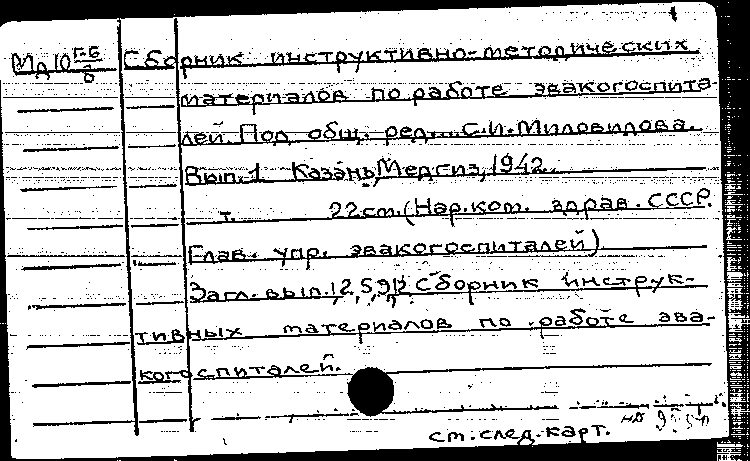 Мд10 Г-Б/8 Сборник инструктивно-методических
материалов по работе эвакогоспита-
лей. Под общ. ред.... С.И. Миловидова.
Вып. 1 Казань, Медгиз, 1942.
т. 22 см. (Нар. ком. здрав. СССР.
Глав. упр. эвакогоспиталей)
Загл. вып. 1, 2, 5, 9, 12: Сборник инструк-
тивных материалов по работе эва-
когоспиталей.
см. след. карт. на